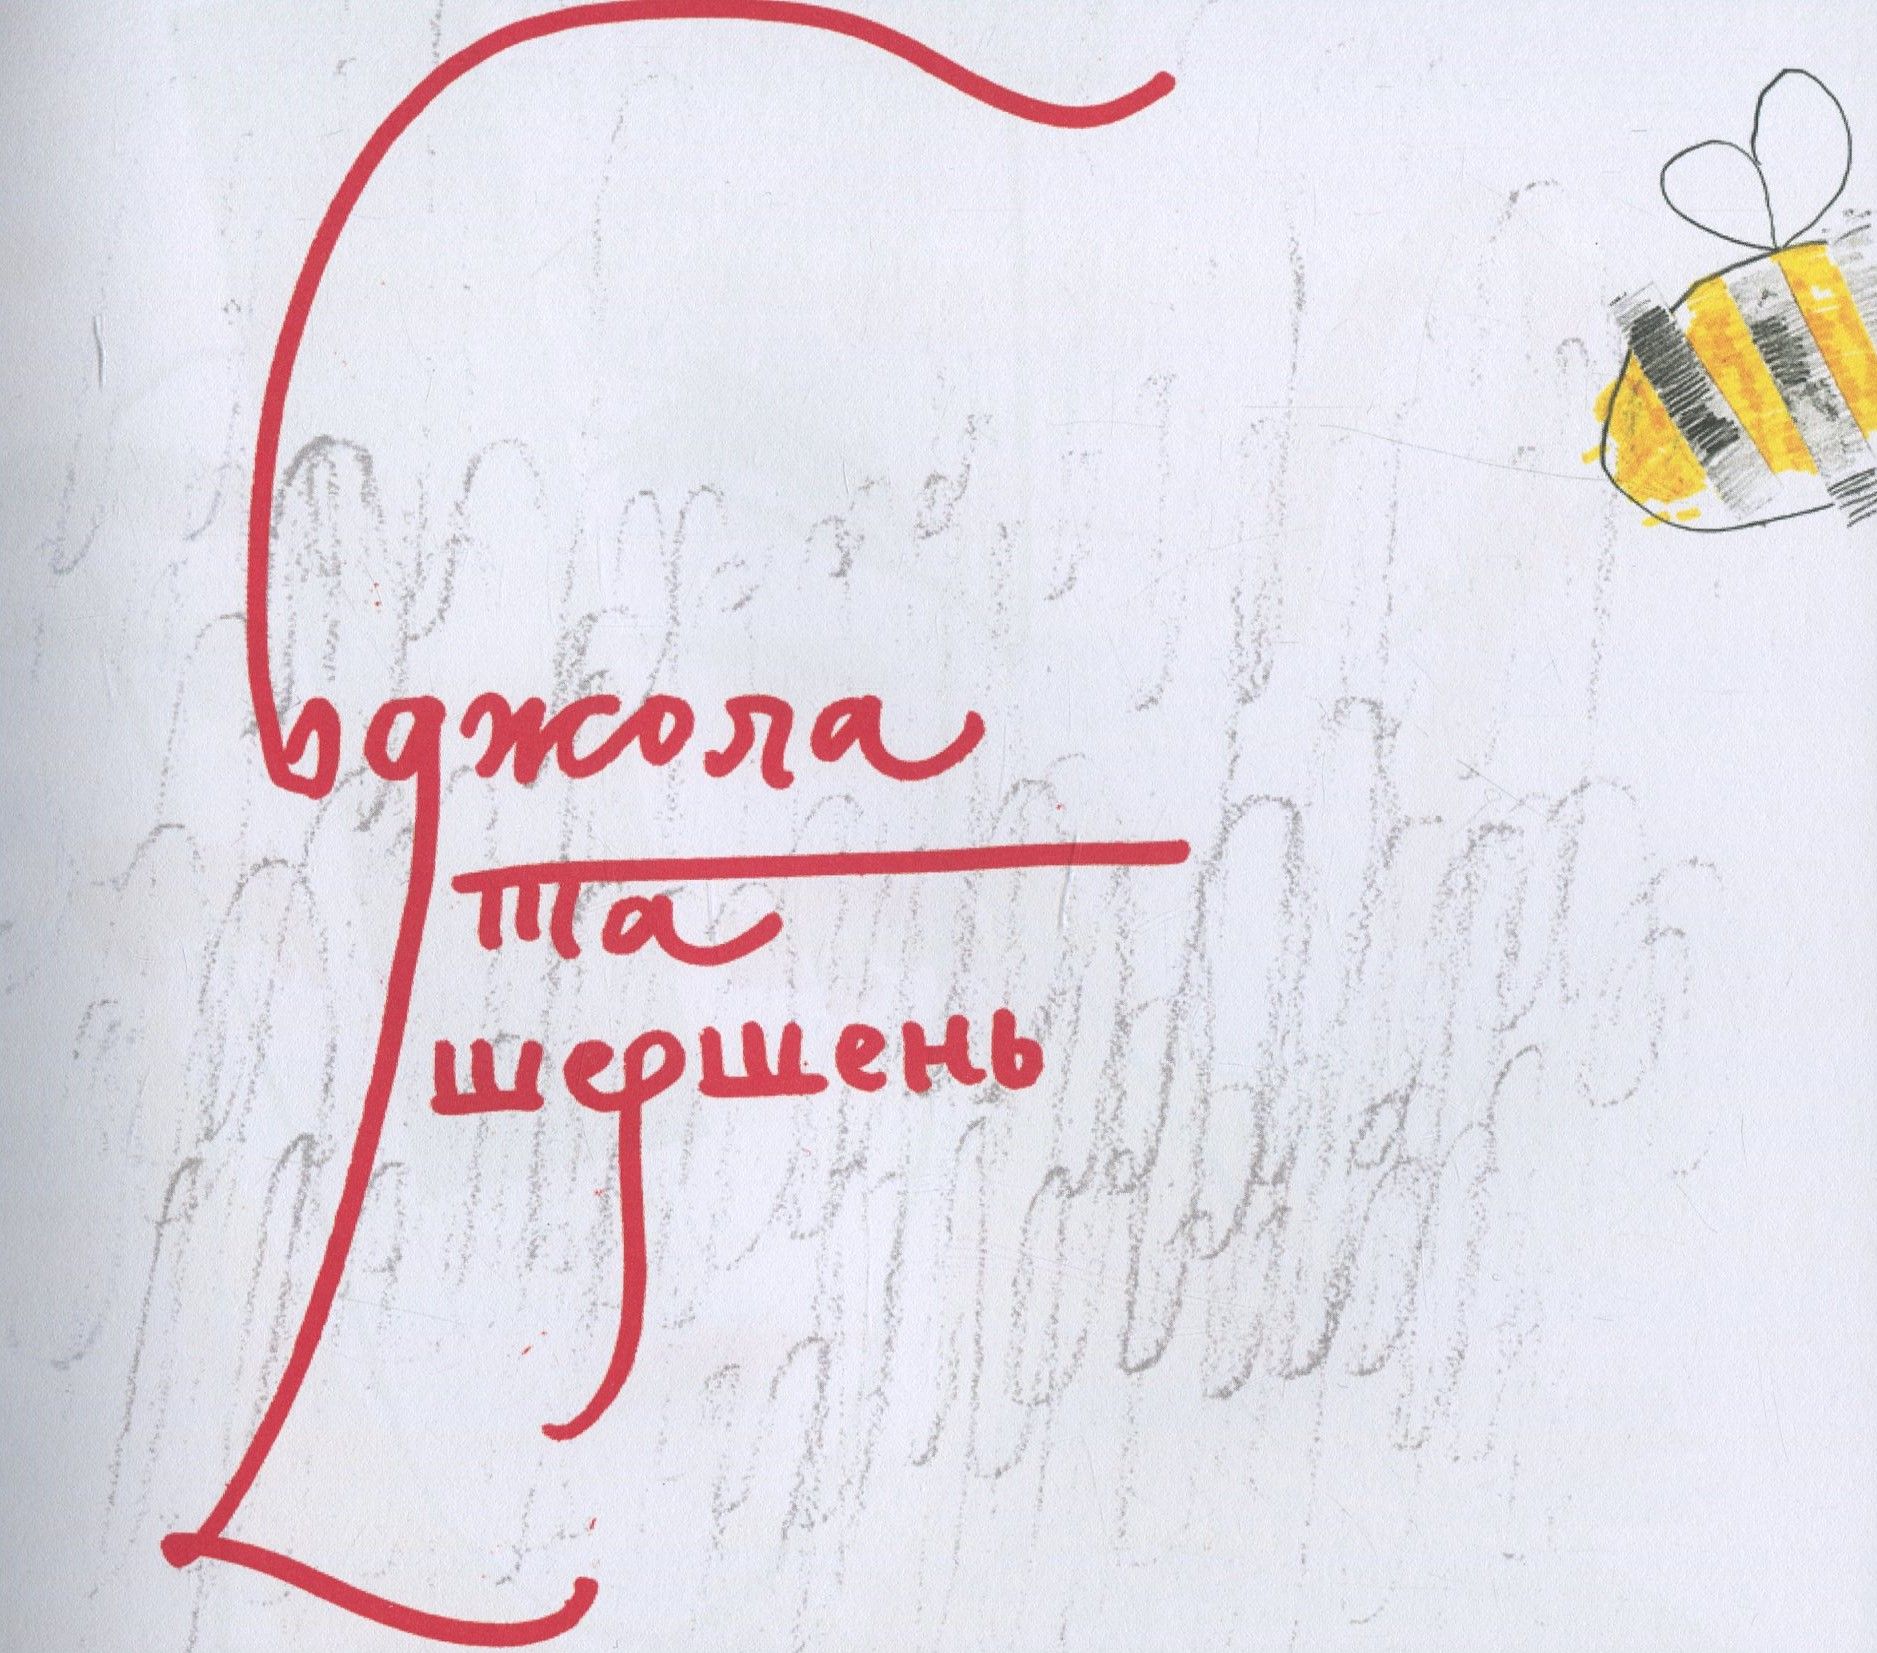 бджола
та
шершень